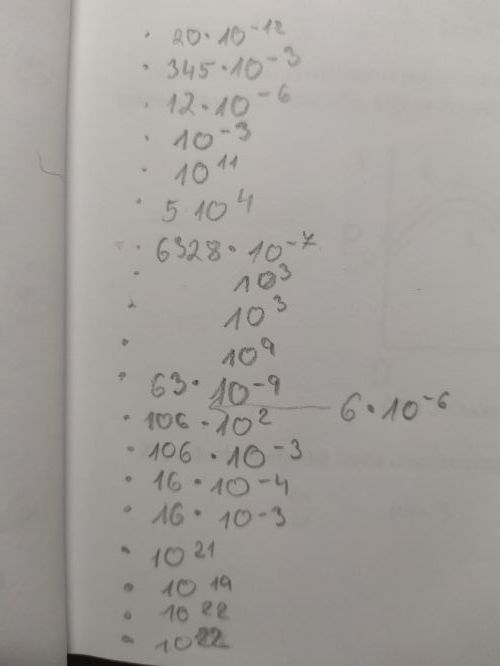 · 20 · 10⁻¹²
· 345 · 10⁻³
· 12 · 10⁻⁶
· 10⁻³
· 10¹¹
· 5 10⁴
· 6328 · 10⁻⁷
· 10³
· 10³
· 10⁹
· 63 · 10⁻⁹
6 · 10⁻⁶
· 106 · 10²
· 106 · 10⁻³
· 16 · 10⁻⁴
· 16 · 10⁻³
· 10²¹
· 10¹⁹
· 10²²
· 10²²